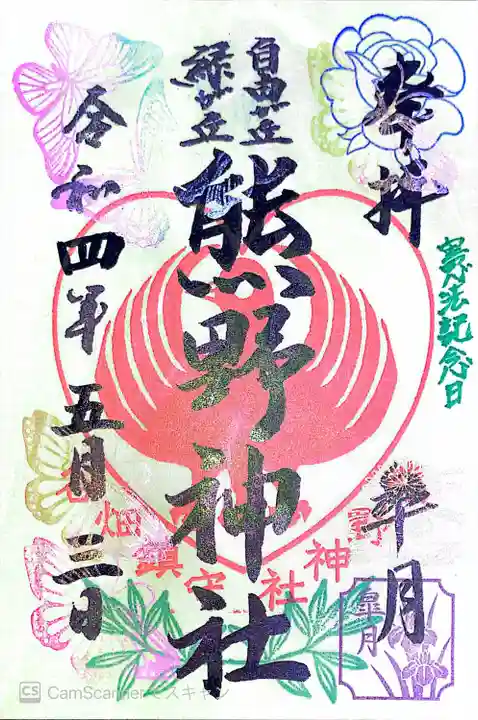 奉拝
憲法記念日
皐月
皐月
自由ヶ丘
緑ヶ丘
熊野神社
令和四年五月三日
畑鎮守
野神社
CS CamScannerでスキャン